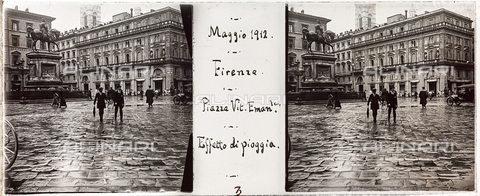 Maggio 1912.
Firenze.
Piazza Vit. Eman.le
Effetto di pioggia.
3
ALINARI
ALINARI